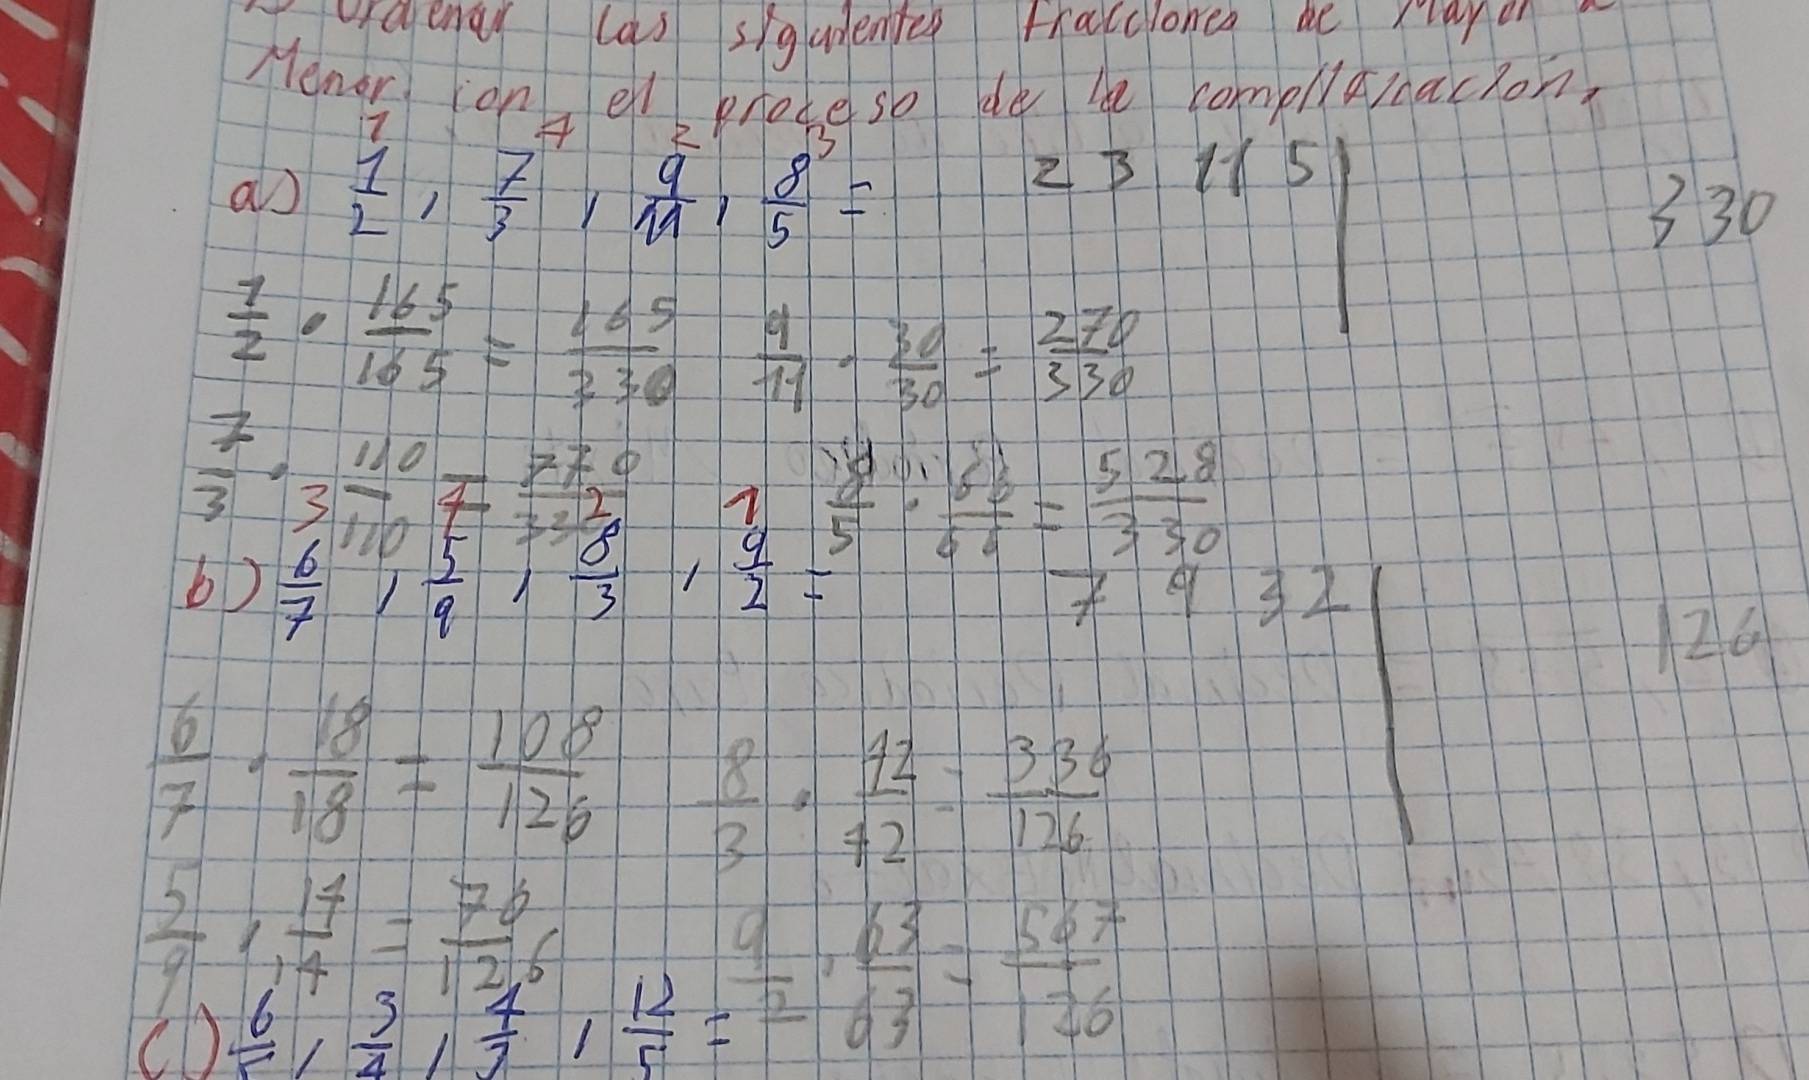 Ordenar las siguientes fracciones de Mayor a
Menor con el proceso de la complificación.
1 4 2 3
a) 1/2 , 7/3 , 9/11 , 8/5 = 2 3 11 5 | 330
1/2 · 165/165 = 165/330 9/11 · 30/30 = 270/330
7/3 · 110/110 = 770/330 8/5 · 66/66 = 528/330
3 4 2 1
b) 6/7 , 5/9 , 8/3 , 9/2 = 7 9 3 2 | 126
6/7 · 18/18 = 108/126 8/3 · 42/42 = 336/126
5/9 · 14/14 = 76/126 9/2 · 63/63 = 567/126
c) 6/5 , 3/4 , 4/3 , 12/5 =